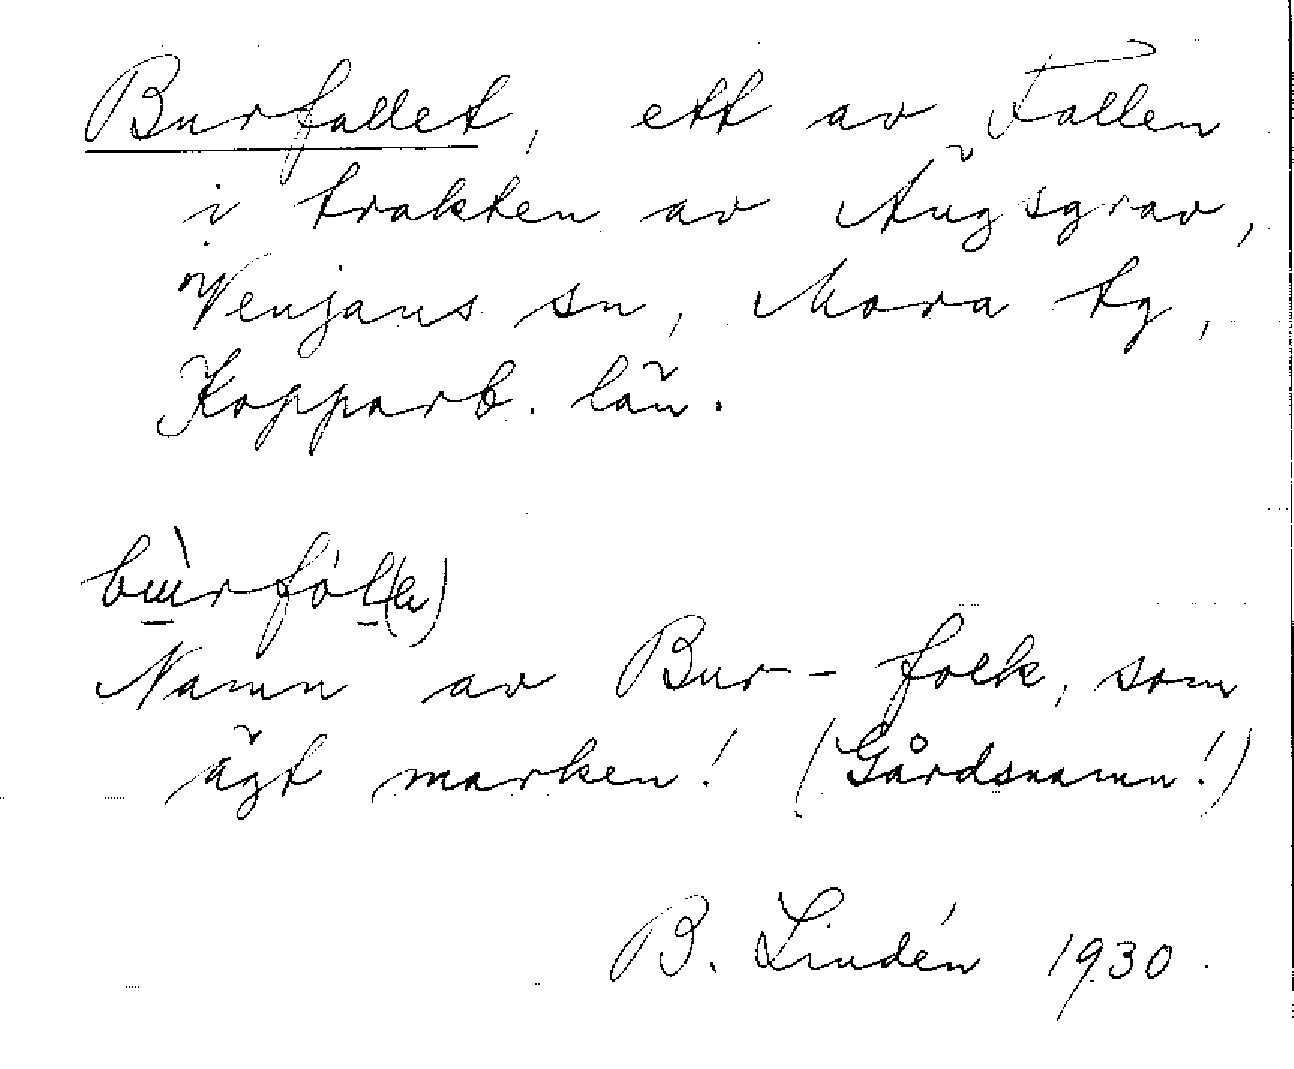 Burfallet, ett av Fallen
i trakten av Ängsgrav,
Venjans sn, Mora tg,
Kopparb. län.
Namn av Bur-folk, som
ägt marken! (Gårdsnamn!)
B. Lindén 1930.